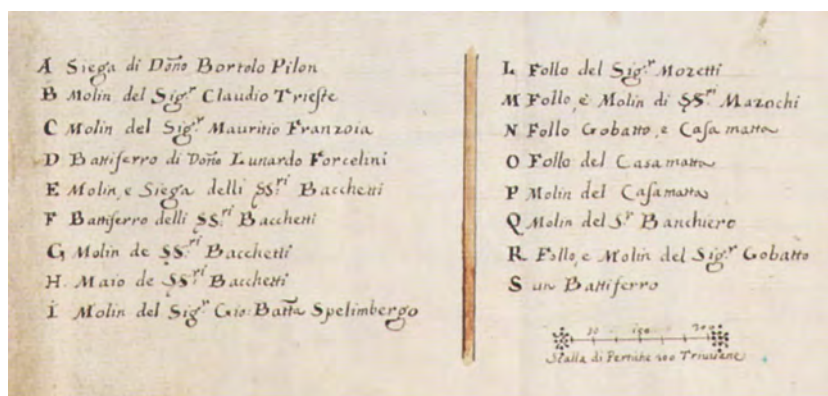 A Siega di Dõno Bortolo Pilon
B Molin del Sig.r Claudio Trieſte
C Molin del Sig.r Mauritio Franzoia
D Battiferro di Dõno Lunardo Forcelini
E Molin, e Siega delli SS.ri Bacchetti
F Battiferro delli SS.ri Bacchetti
G Molin de SS.ri Bacchetti
H. Maio de SS.ri Bacchetti
I Molin del Sig.r Gio: Batta Spelimbergo
L Follo del Sig.r Mozetti
M Follo, è Molin di SS.ri Mazochi
N Follo Gobatto, e Caſa matta
O Follo del Casamatta
P Molin del Caſamatta
Q Molin del S.r Banchiero
R Follo, e Molin del Sig.r Gobatto
S un Battiferro
50 150 200
Scalla di Pertiche 200 Triuisane